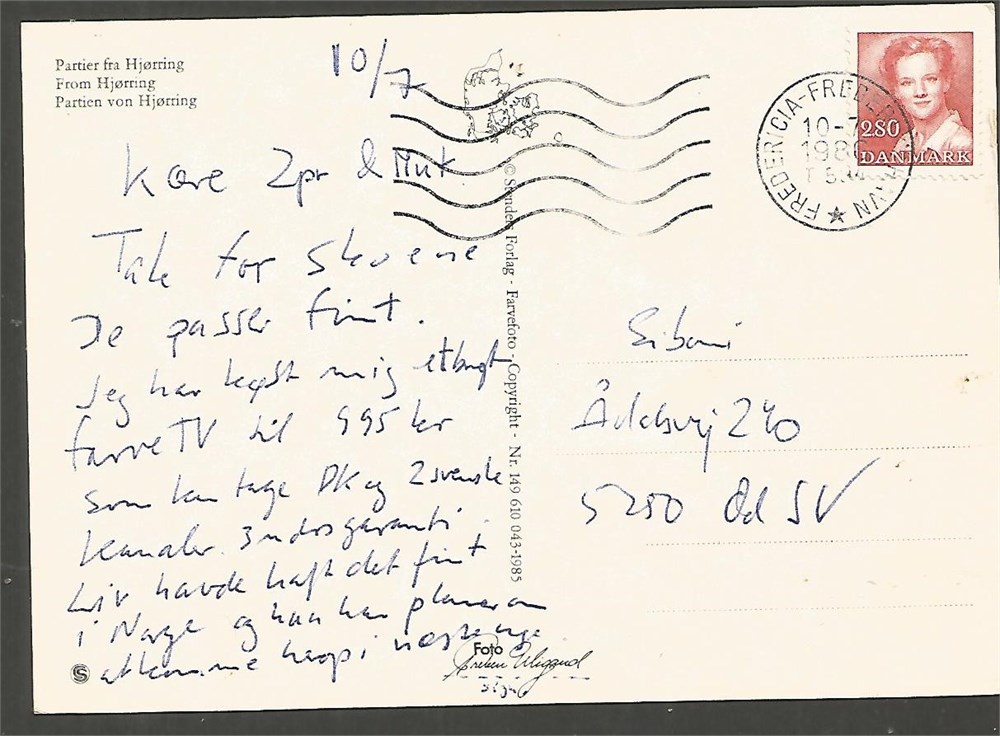 Partier fra Hjørring
From Hjørring
Partien von Hjørring
10/7
Kære
Tak for skoene
De passer fint.
Jeg har købt mig et brugt
farve TV til 995 kr
som kan tage DK og 2 svenske
kanaler. 3 mdrs garanti.
havde haft det fint
i Norge og han har planer om
at komme herop i næste uge
© Stenders Forlag - Farvefoto - Copyright - Nr. 149 610 043-1985
Foto
FREDERICIA-FREDER
10-7
198
280
DANMARK
Siboni
Ådalsvej 240
5250 Od SV
S